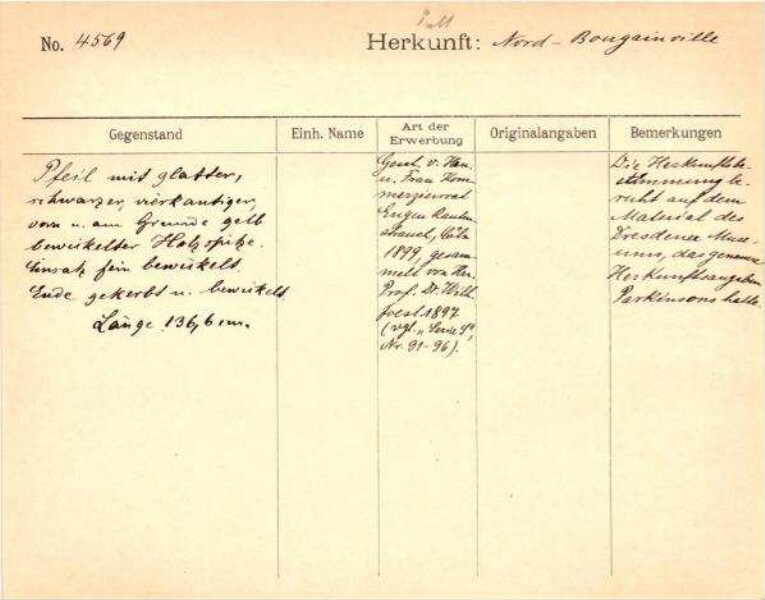 No. 4569
Herkunft: Nord-Bougainville
Gegenstand
Einh. Name
Art der
Erwerbung
Originalangaben
Bemerkungen
Pfeil mit glatter,
schwarzer, vierkantiger,
vorn u. am Grunde gelb
bewickelter Holzspitze.
Einsatz fein bewickelt.
Ende gekerbt u. bewickelt.
Länge 136,6 cm.
Gesch. v. Hrn.
u. Frau Kom-
merzienrat
Eugen Rauten-
strauch, Cöln
1899, gesam-
melt von Hrn.
Prof. Dr. Wilh.
Joest 1897
(vgl. „
Nr. 91-96).
Die Herkunftsbe-
stimmung be-
ruht auf dem
Material des
Dresdener Muse-
ums, das genaue
Herkunftsangaben
Parkinsons hatte.